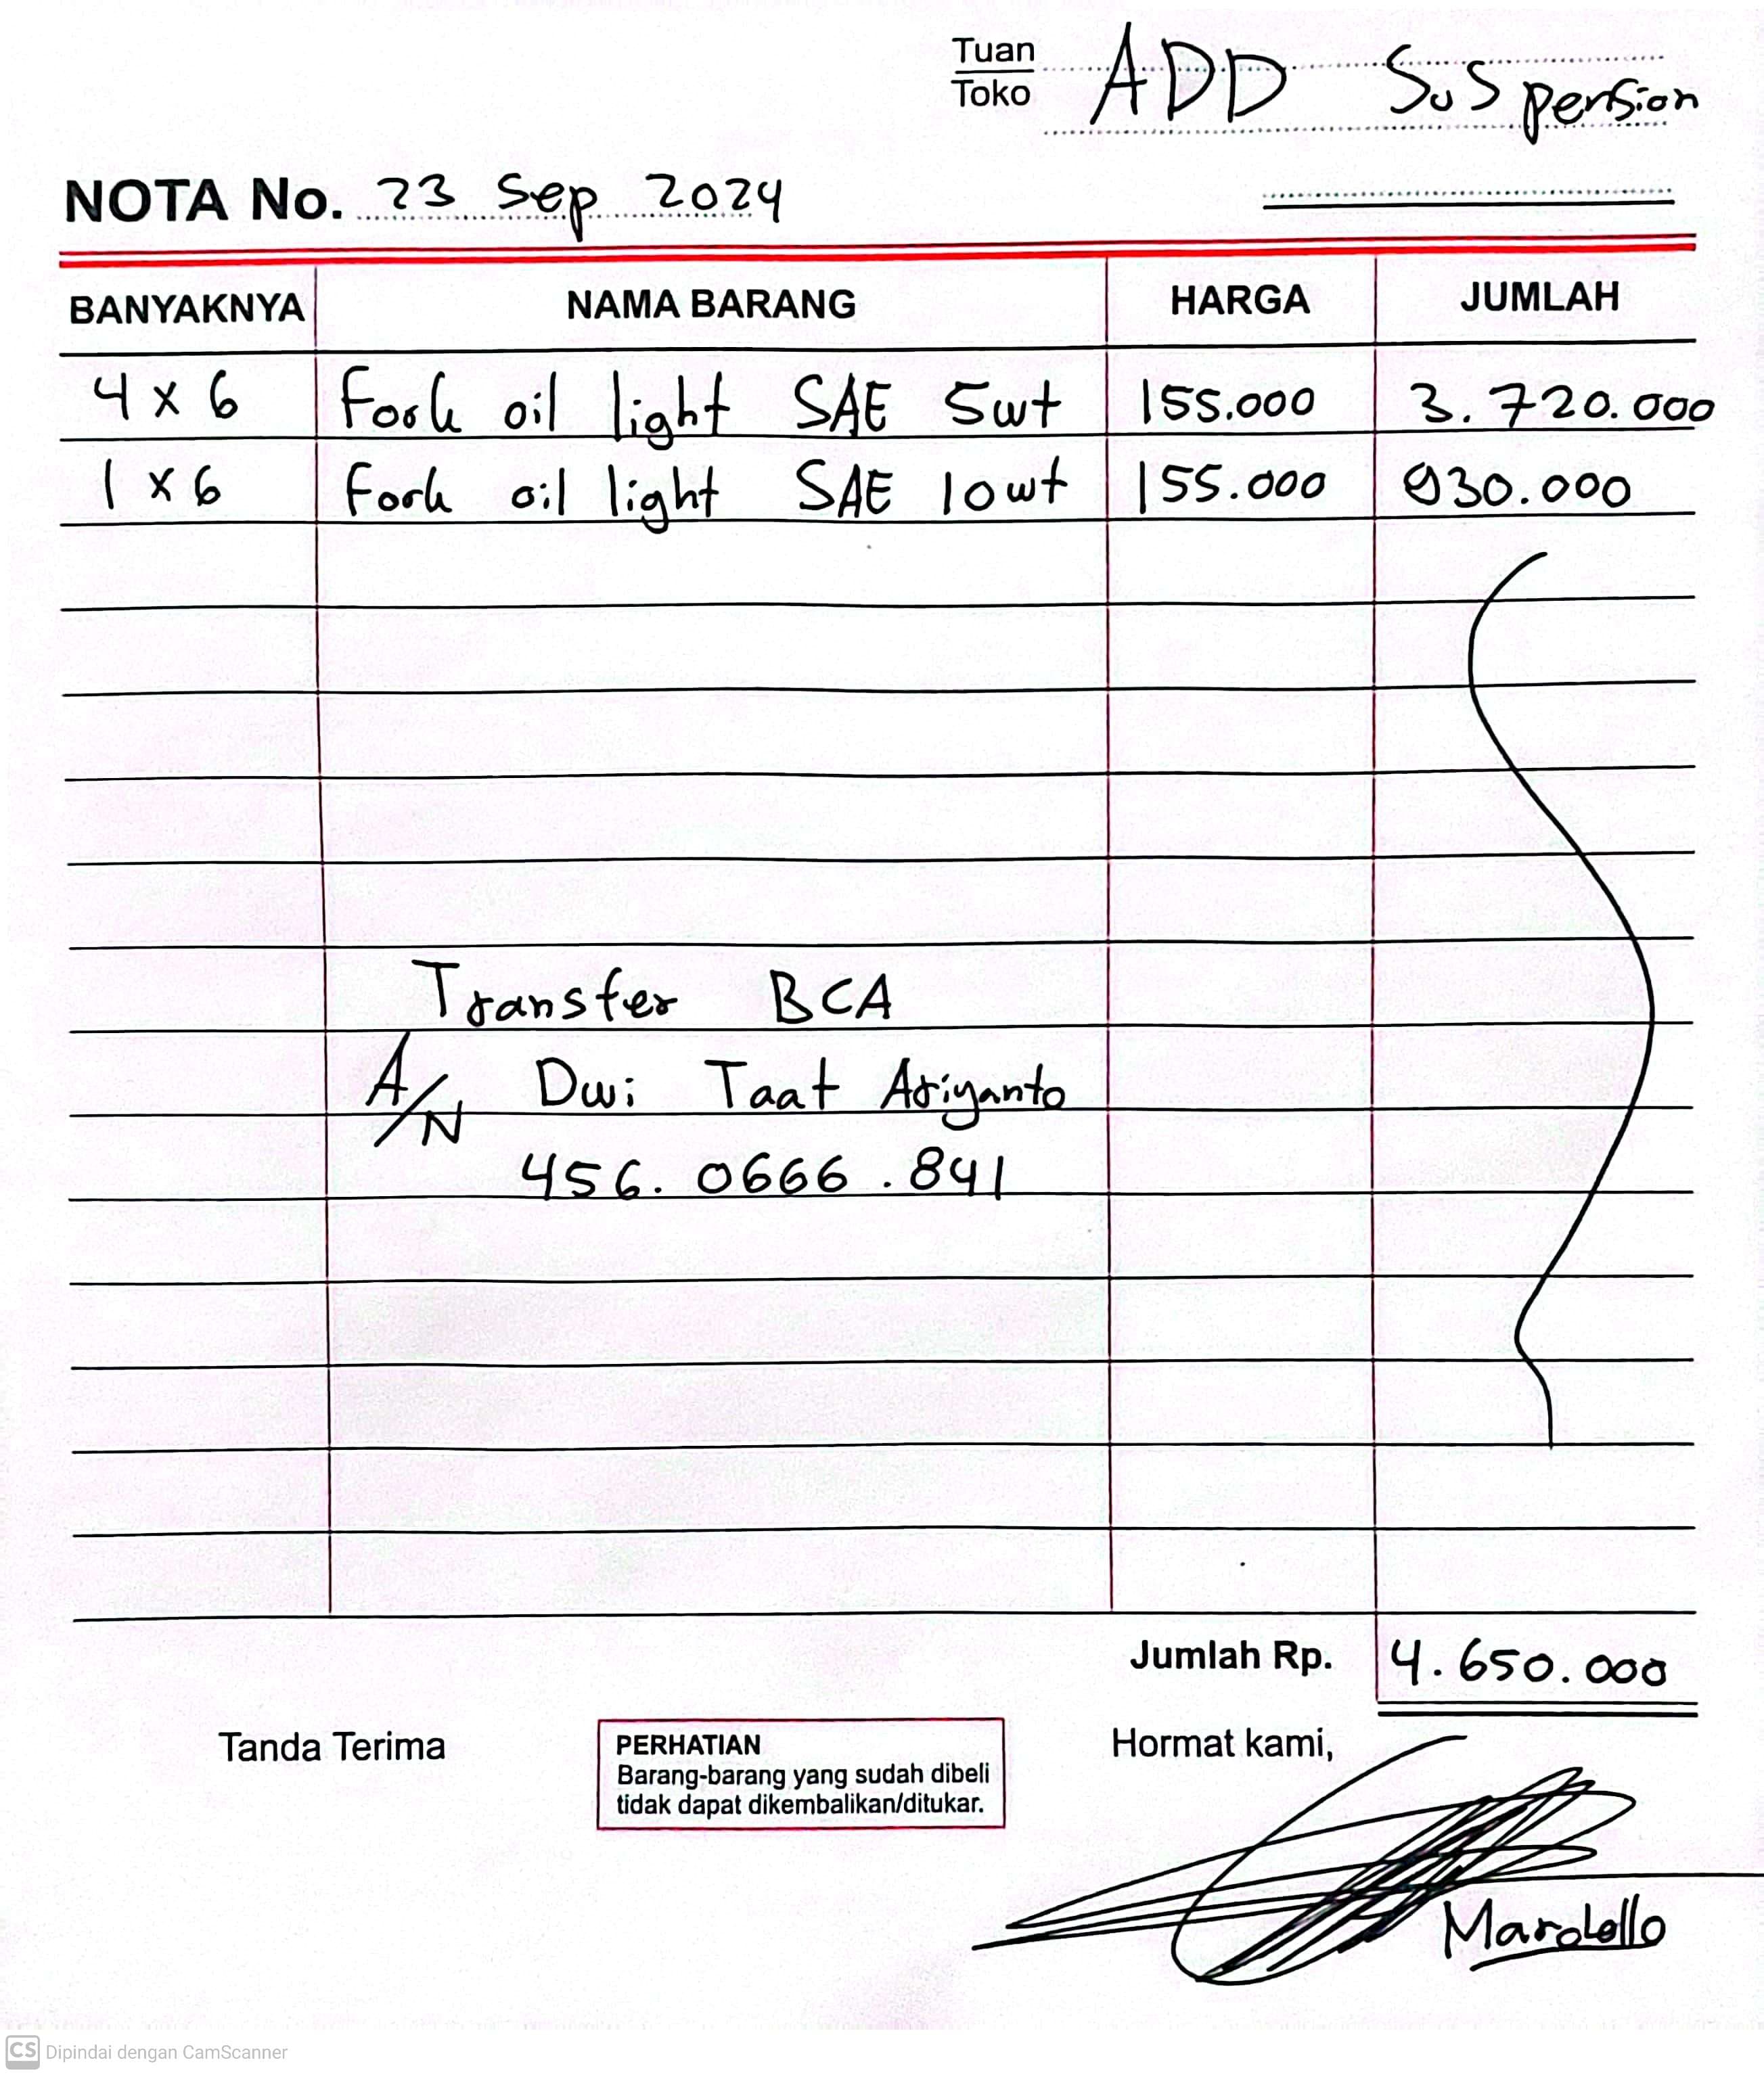 Tuan
Toko
ADD Suspension
NOTA No. 23 Sep 2024
BANYAKNYA NAMA BARANG HARGA JUMLAH
4 x 6 Fork oil light SAE 5wt 155.000 3.720.000
1 x 6 Fork oil light SAE 10wt 155.000 930.000
Transfer BCA
A/N Dwi Taat Ariyanto
456.0666.841
Jumlah Rp. 4.650.000
Tanda Terima
PERHATIAN
Barang-barang yang sudah dibeli
tidak dapat dikembalikan/ditukar.
Hormat kami,
CS Dipindai dengan CamScanner